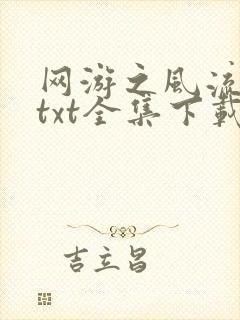 网游之风流
txt全集下载
吉立昌